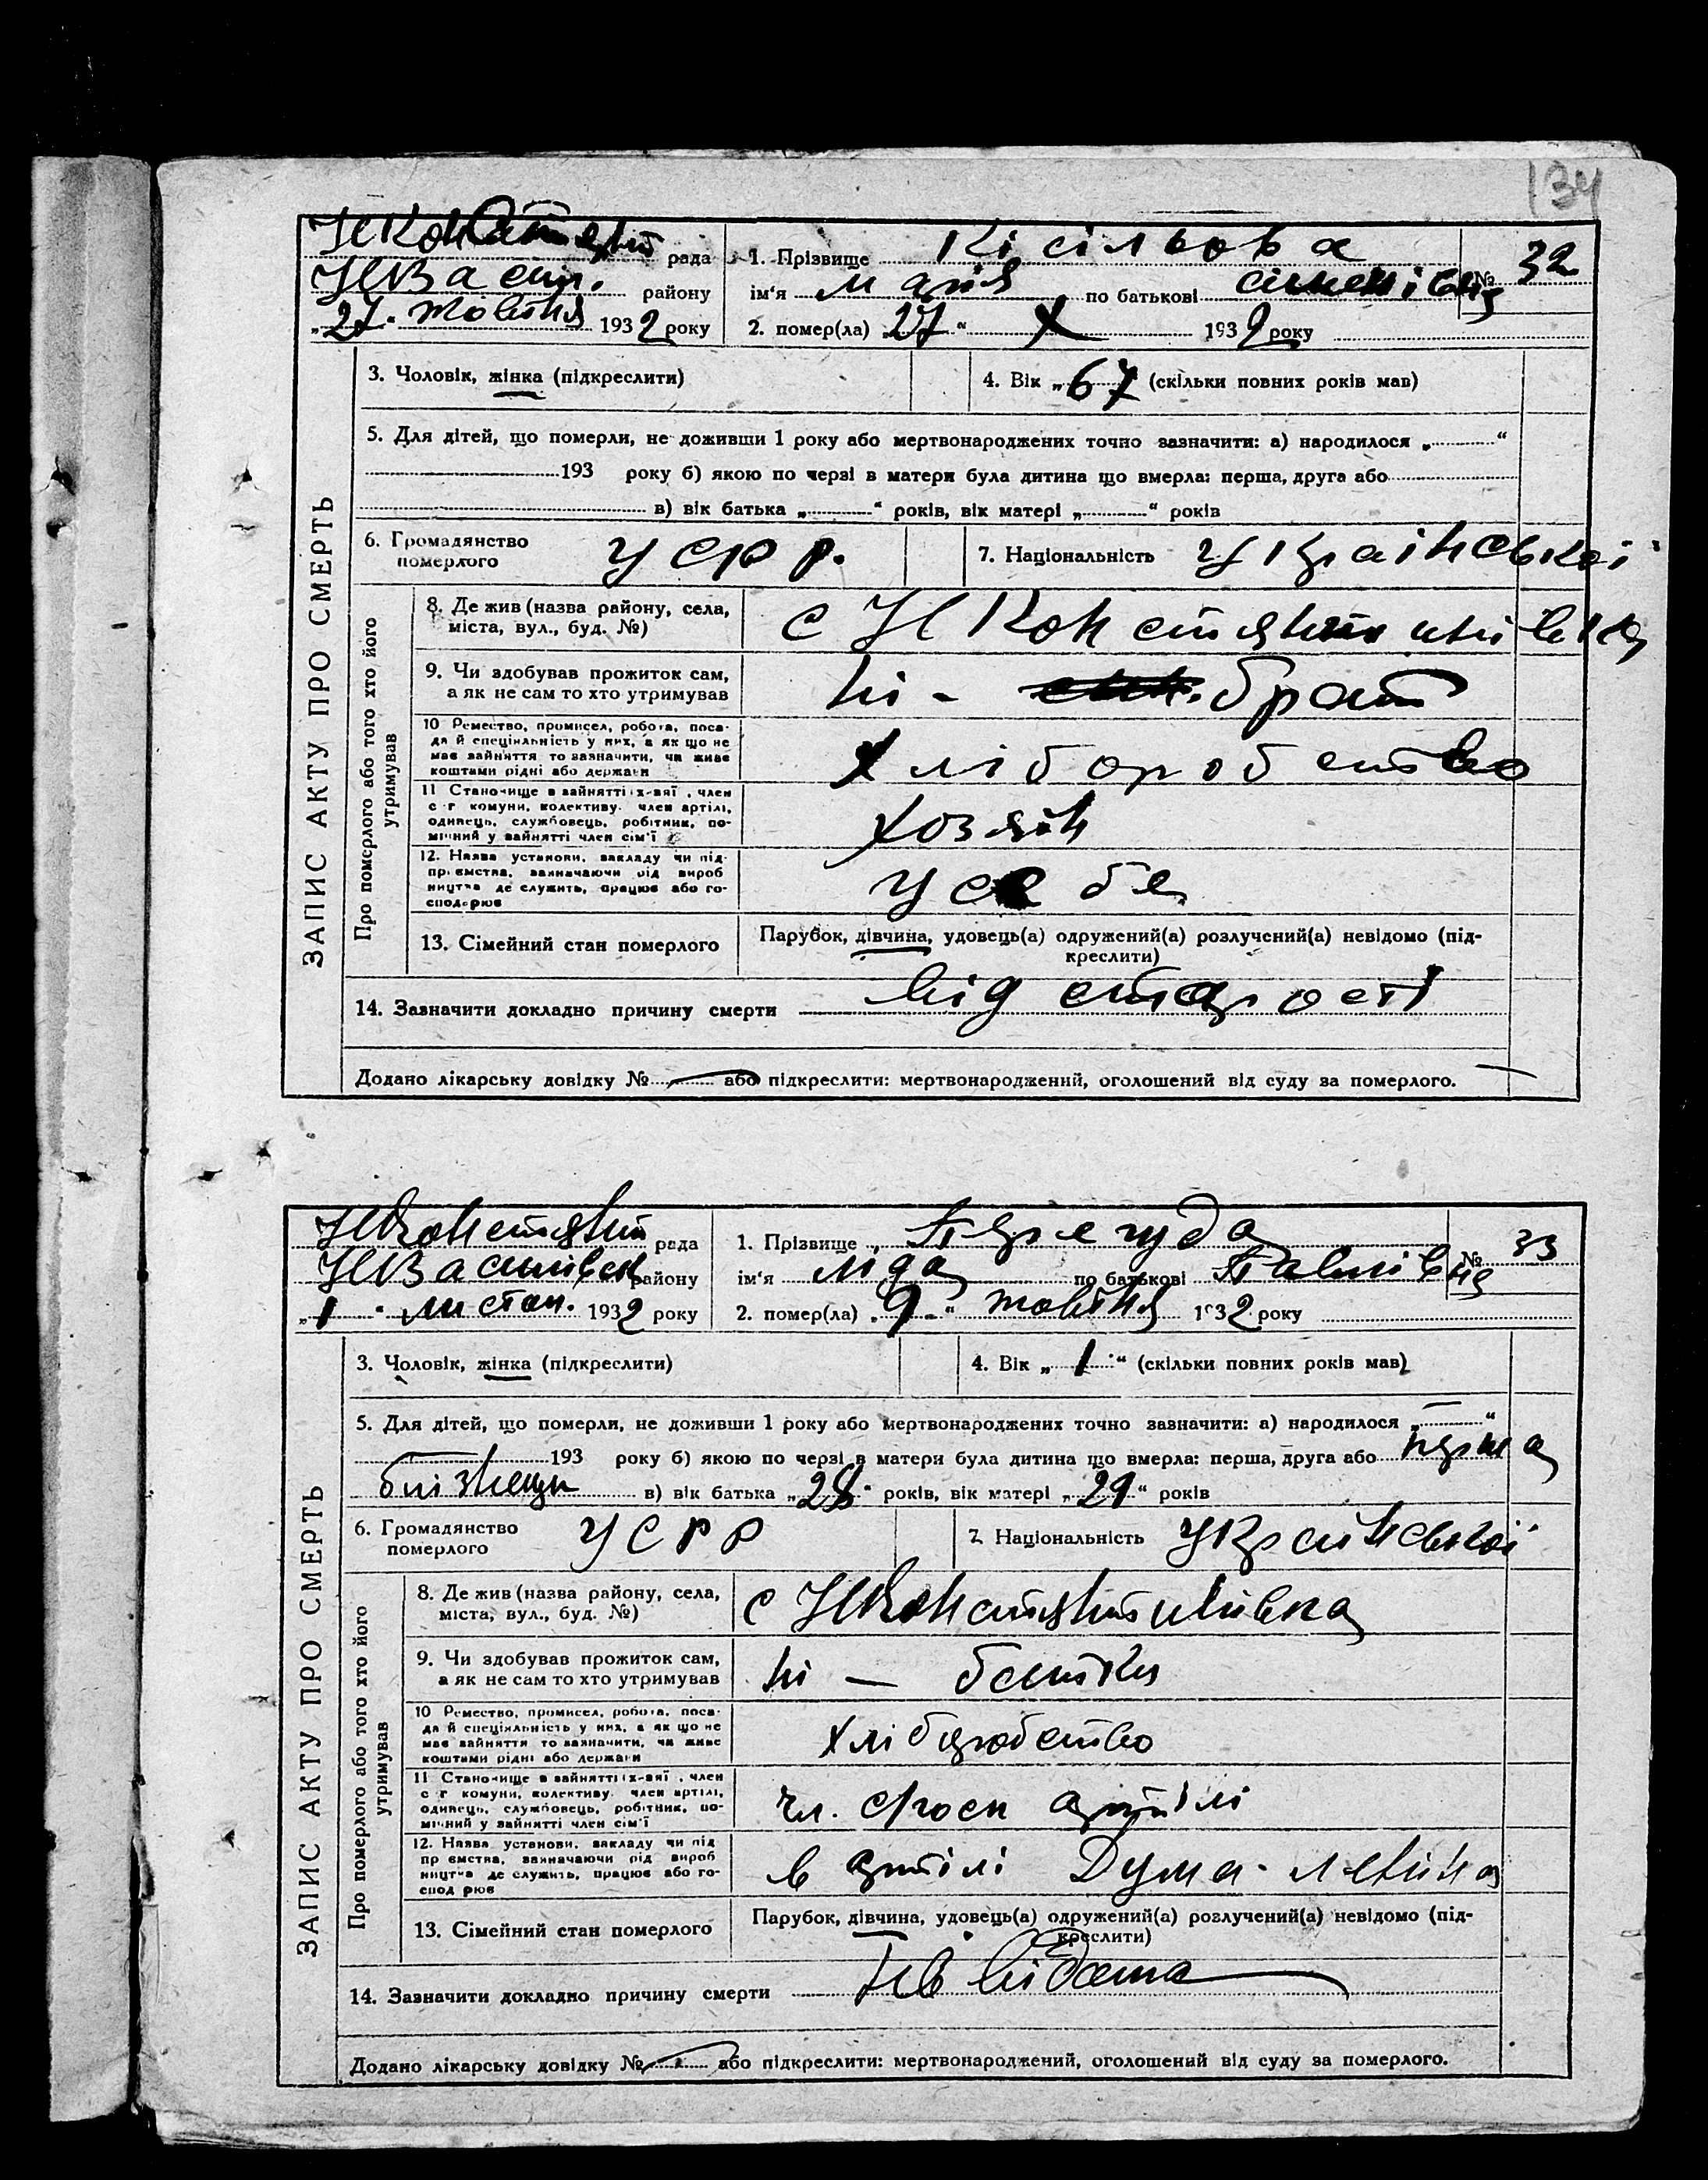 134
НКонстянт рада
НВасил. району
„27" жовтня 1932 року
1. Прізвище Кісільова
ім'я марія по батькові сіменівна
№ 32
2. помер(ла) „27" X 1932 року
ЗАПИС АКТУ ПРО СМЕРТЬ
3. Чоловік, жінка (підкреслити)
4. Вік „67 (скільки повних років мав)
5. Для дітей, що померли, не доживши 1 року або мертвонароджених точно зазначити: а) народилося „ "
193 року б) якою по черзі в матери була дитина що вмерла: перша, друга або
в) вік батька „ " років, вік матері „ " років
6. Громадянство померлого УСРР.
7. Національність Української
Про померлого або того хто його утримував
8. Де жив (назва району, села,
міста, вул., буд. №)
с НКонстянтинівка
9. Чи здобував прожиток сам,
а як не сам то хто утримував
ні - брат
10 Ремество, промисел, робота, поса-
да й спеціяльність у них, а як що не
має зайняття то зазначити, чи живе
коштами рідні або держави
хліборобство
11 Становище в зайнятті: х-вяї , член
с г комуни, колективу. член артілі,
одинець, службовець, робітник, по-
мічний у зайнятті член сім'ї
хозяін
12. Назва установи, закладу чи під-
приємства, зазначаючи рід вироб
ництва де служить, працює або го-
сподарює
у себе
13. Сімейний стан померлого
Парубок, дівчина, удовець(а) одружений(а) розлучений(а) невідомо (під-
креслити)
14. Зазначити докладно причину смерти від старості
Додано лікарську довідку № або підкреслити: мертвонароджений, оголошений від суду за померлого.
НКонстянт рада
НВасилівск району
„1" листоп. 1932 року
1. Прізвище Перегуда
ім'я ліда по батькові Павлівна
№ 33
2. помер(ла) „9" жовтня 1932 року
ЗАПИС АКТУ ПРО СМЕРТЬ
3. Чоловік, жінка (підкреслити)
4. Вік „1" (скільки повних років мав)
5. Для дітей, що померли, не доживши 1 року або мертвонароджених точно зазначити: а) народилося „ "
193 року б) якою по черзі в матери була дитина що вмерла: перша, друга або перша
близнеци в) вік батька „28" років, вік матері „29" років
6. Громадянство померлого УСРР
7. Національність Української
Про померлого або того хто його утримував
8. Де жив (назва району, села,
міста, вул., буд. №)
с НКонстянтинівка
9. Чи здобував прожиток сам,
а як не сам то хто утримував
ні — батьки
10 Ремество, промисел, робота, поса-
да й спеціяльність у них, а як що не
має зайняття то зазначити, чи живе
коштами рідні або держави
хліборобство
11 Становище в зайнятті: х-вяї , член
с г комуни, колективу. член артілі,
одинець, службовець, робітник, по-
мічний у зайнятті член сім'ї
чл. артілі
12. Назва установи, закладу чи під
приємства, зазначаючи рід вироб
ництва де служить, працює або го-
сподарює
в артілі Дума леніна
13. Сімейний стан померлого
Парубок, дівчина, удовець(а) одружений(а) розлучений(а) невідомо (під-
креслити)
14. Зазначити докладно причину смерти
Додано лікарську довідку № або підкреслити: мертвонароджений, оголошений від суду за померлого.